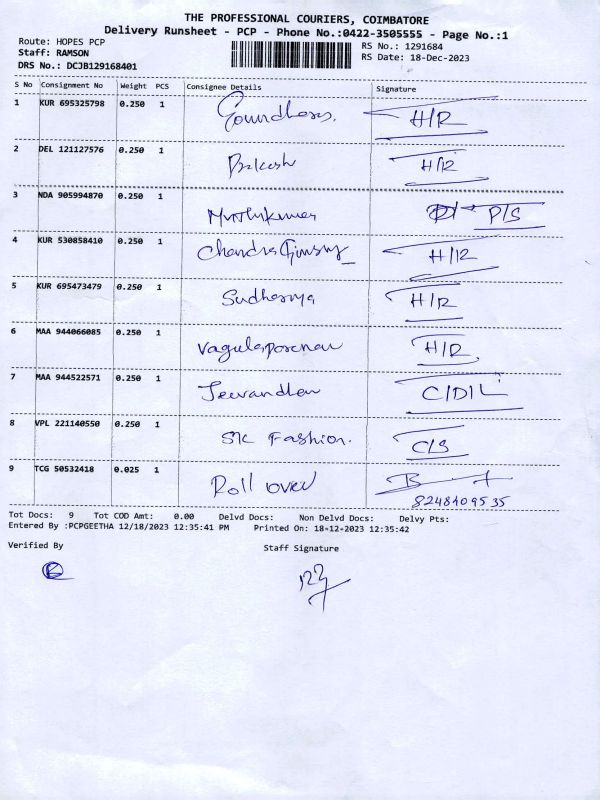 THE PROFESSIONAL COURIERS, COIMBATORE
Delivery Runsheet - PCP - Phone No.:0422-3505555 - Page No.:1
Route: HOPES PCP
Staff: RAMSON
DRS No.: DCJB129168401
RS No.: 1291684
RS Date: 18-Dec-2023
S No Consignment No Weight PCS Consignee Details Signature
1 KUR 695325798 0.250 1 H/R
2 DEL 121127576 0.250 1 H/R
3 NDA 905994870 0.250 1 P/S
4 KUR 530858410 0.250 1 H/R
5 KUR 695473479 0.250 1 Sudhanya H/R
6 MAA 944066085 0.250 1 H/R
7 MAA 944522571 0.250 1 C/D/L
8 VPL 221140550 0.250 1 SK Fashion. C/S
9 TCG 50532418 0.025 1 Roll over
8248409535
Tot Docs: 9 Tot COD Amt: 0.00 Delvd Docs: Non Delvd Docs: Delvy Pts:
Entered By :PCPGEETHA 12/18/2023 12:35:41 PM Printed On: 18-12-2023 12:35:42
Verified By Staff Signature